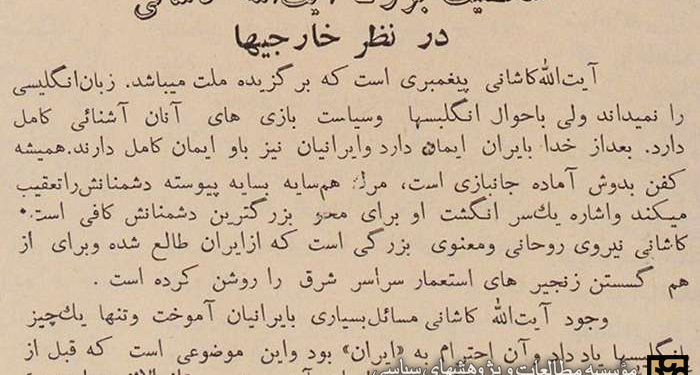 در نظر خارجیها
آیت‌الله‌کاشانی پیغمبری است که برگزیده ملت میباشد. زبان‌انگلیسی
را نمیداند ولی باحوال انگلیسها وسیاست بازی های آنان آشنائی کامل
دارد. بعداز خدا بایران ایمان دارد وایرانیان نیز باو ایمان کامل دارند.همیشه
کفن بدوش آماده جانبازی است، مرگ هم‌سایه بسایه پیوسته دشمنانش‌راتعقیب
میکند واشاره یك‌سر انگشت او برای محو بزرگترین دشمنانش کافی است.
کاشانی نیروی روحانی ومعنوی بزرگی است که ازایران طالع شده وبرای از
هم گسستن زنجیر های استعمار سراسر شرق را روشن کرده است .
وجود آیت‌الله کاشانی مسائل‌بسیاری بایرانیان آموخت وتنها یك‌چیز
بانگلیسها یاد داد و آن احترام به «ایران» بود واین موضوعی است که قبل از
مؤسسه مطالعات و پژوهشهای سیاسی